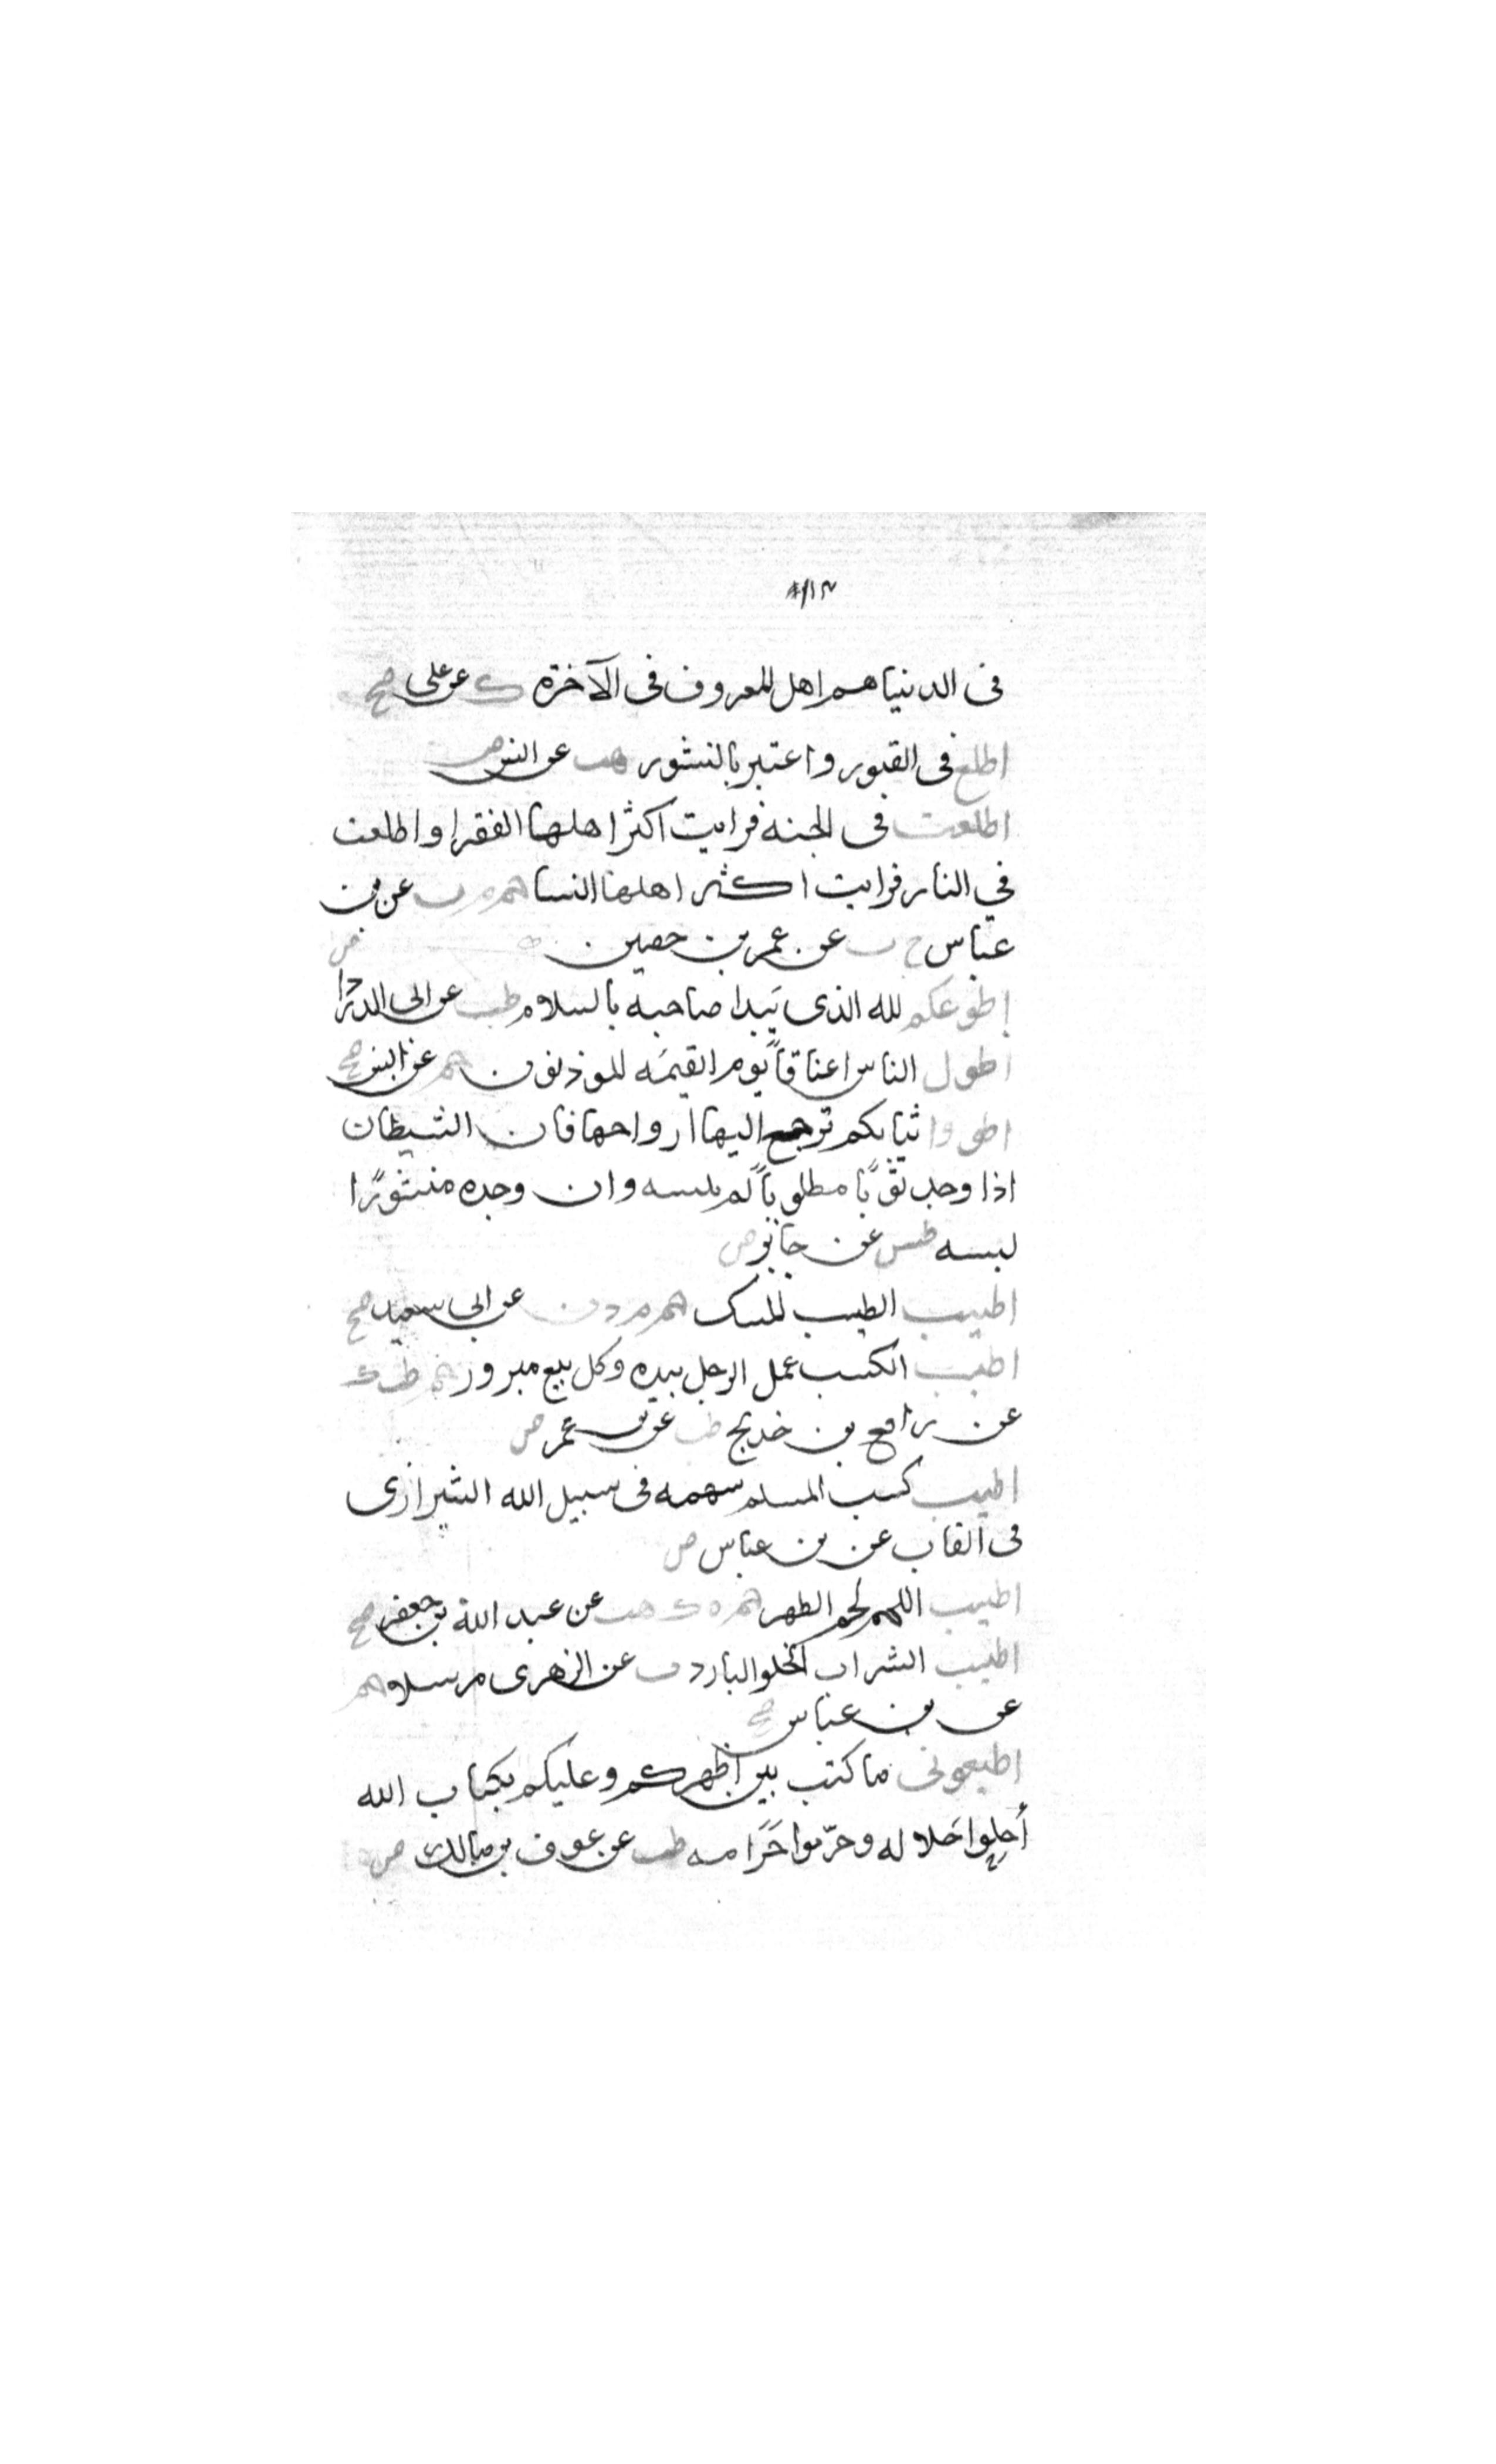 في الدنيا هم اهل المعروف في الآخرة ك عن علي صح
اطلع في القبور واعتبر بالنشور هب عن انس ض
اطلعت في الجنه فرايت اكثر اهلها الفقرا واطلعت
في النار فرايت اكثر اهلها النسا حم م ت عن بن
عباس خ ت عن عمر بن حصين
اطوعكم لله الذي يبدا صاحبه بالسلام طب عن ابي الدردا
اطول الناس اعناقاً يوم القيمه الموذنون حم عن انس صح
اطووا ثيابكم ترجع اليها ارواحها فان الشيطان
اذا وجد ثوباً مطوياً لم يلبسه وان وجده منشورًا
لبسه طس عن جابر ض
اطيب الطيب المسك حم م د ن عن ابي سعيد صح
اطيب الكسب عمل الرجل بيده وكل بيع مبرور حم طب ك
عن رافع بن خديج طب عن بن عمر ض
اطيب كسب المسلم سهمه في سبيل الله الشيرازي
في القاب عن بن عباس ض
اطيب اللحم لحم الظهر حم ه ك هب عن عبد الله بن جعفر صح
اطيب الشراب الحلو البارد ت عن الزهري مرسلا حم
عن بن عباس صح
اطيعوني ما كنت بين اظهركم وعليكم بكتاب الله
أحِلوا حَلاله وحرّموا حَرَامه طب عن عوف بن مالك ض